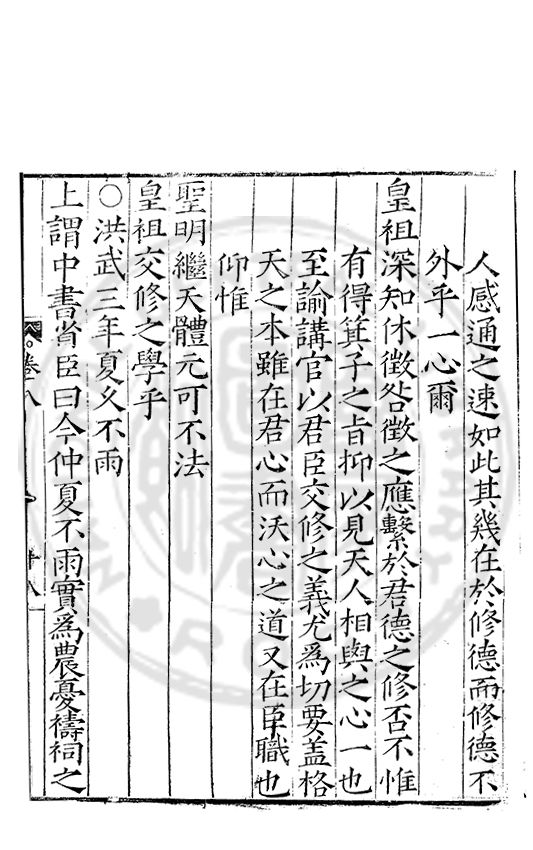 人感通之速如此其幾在於修德而修德不
外乎一心爾
皇祖深知休徵咎徵之應繫於君德之修否不惟
有得箕子之旨抑以見天人相與之心一也
至諭講官以君臣交修之義尤為切要盖格
天之本雖在君心而沃心之道又在臣職也
仰惟
聖明繼天體元可不法
皇祖交修之學乎
○洪武三年夏久不雨
上謂中書省臣曰今仲夏不雨實爲農憂禱祠之
卷八